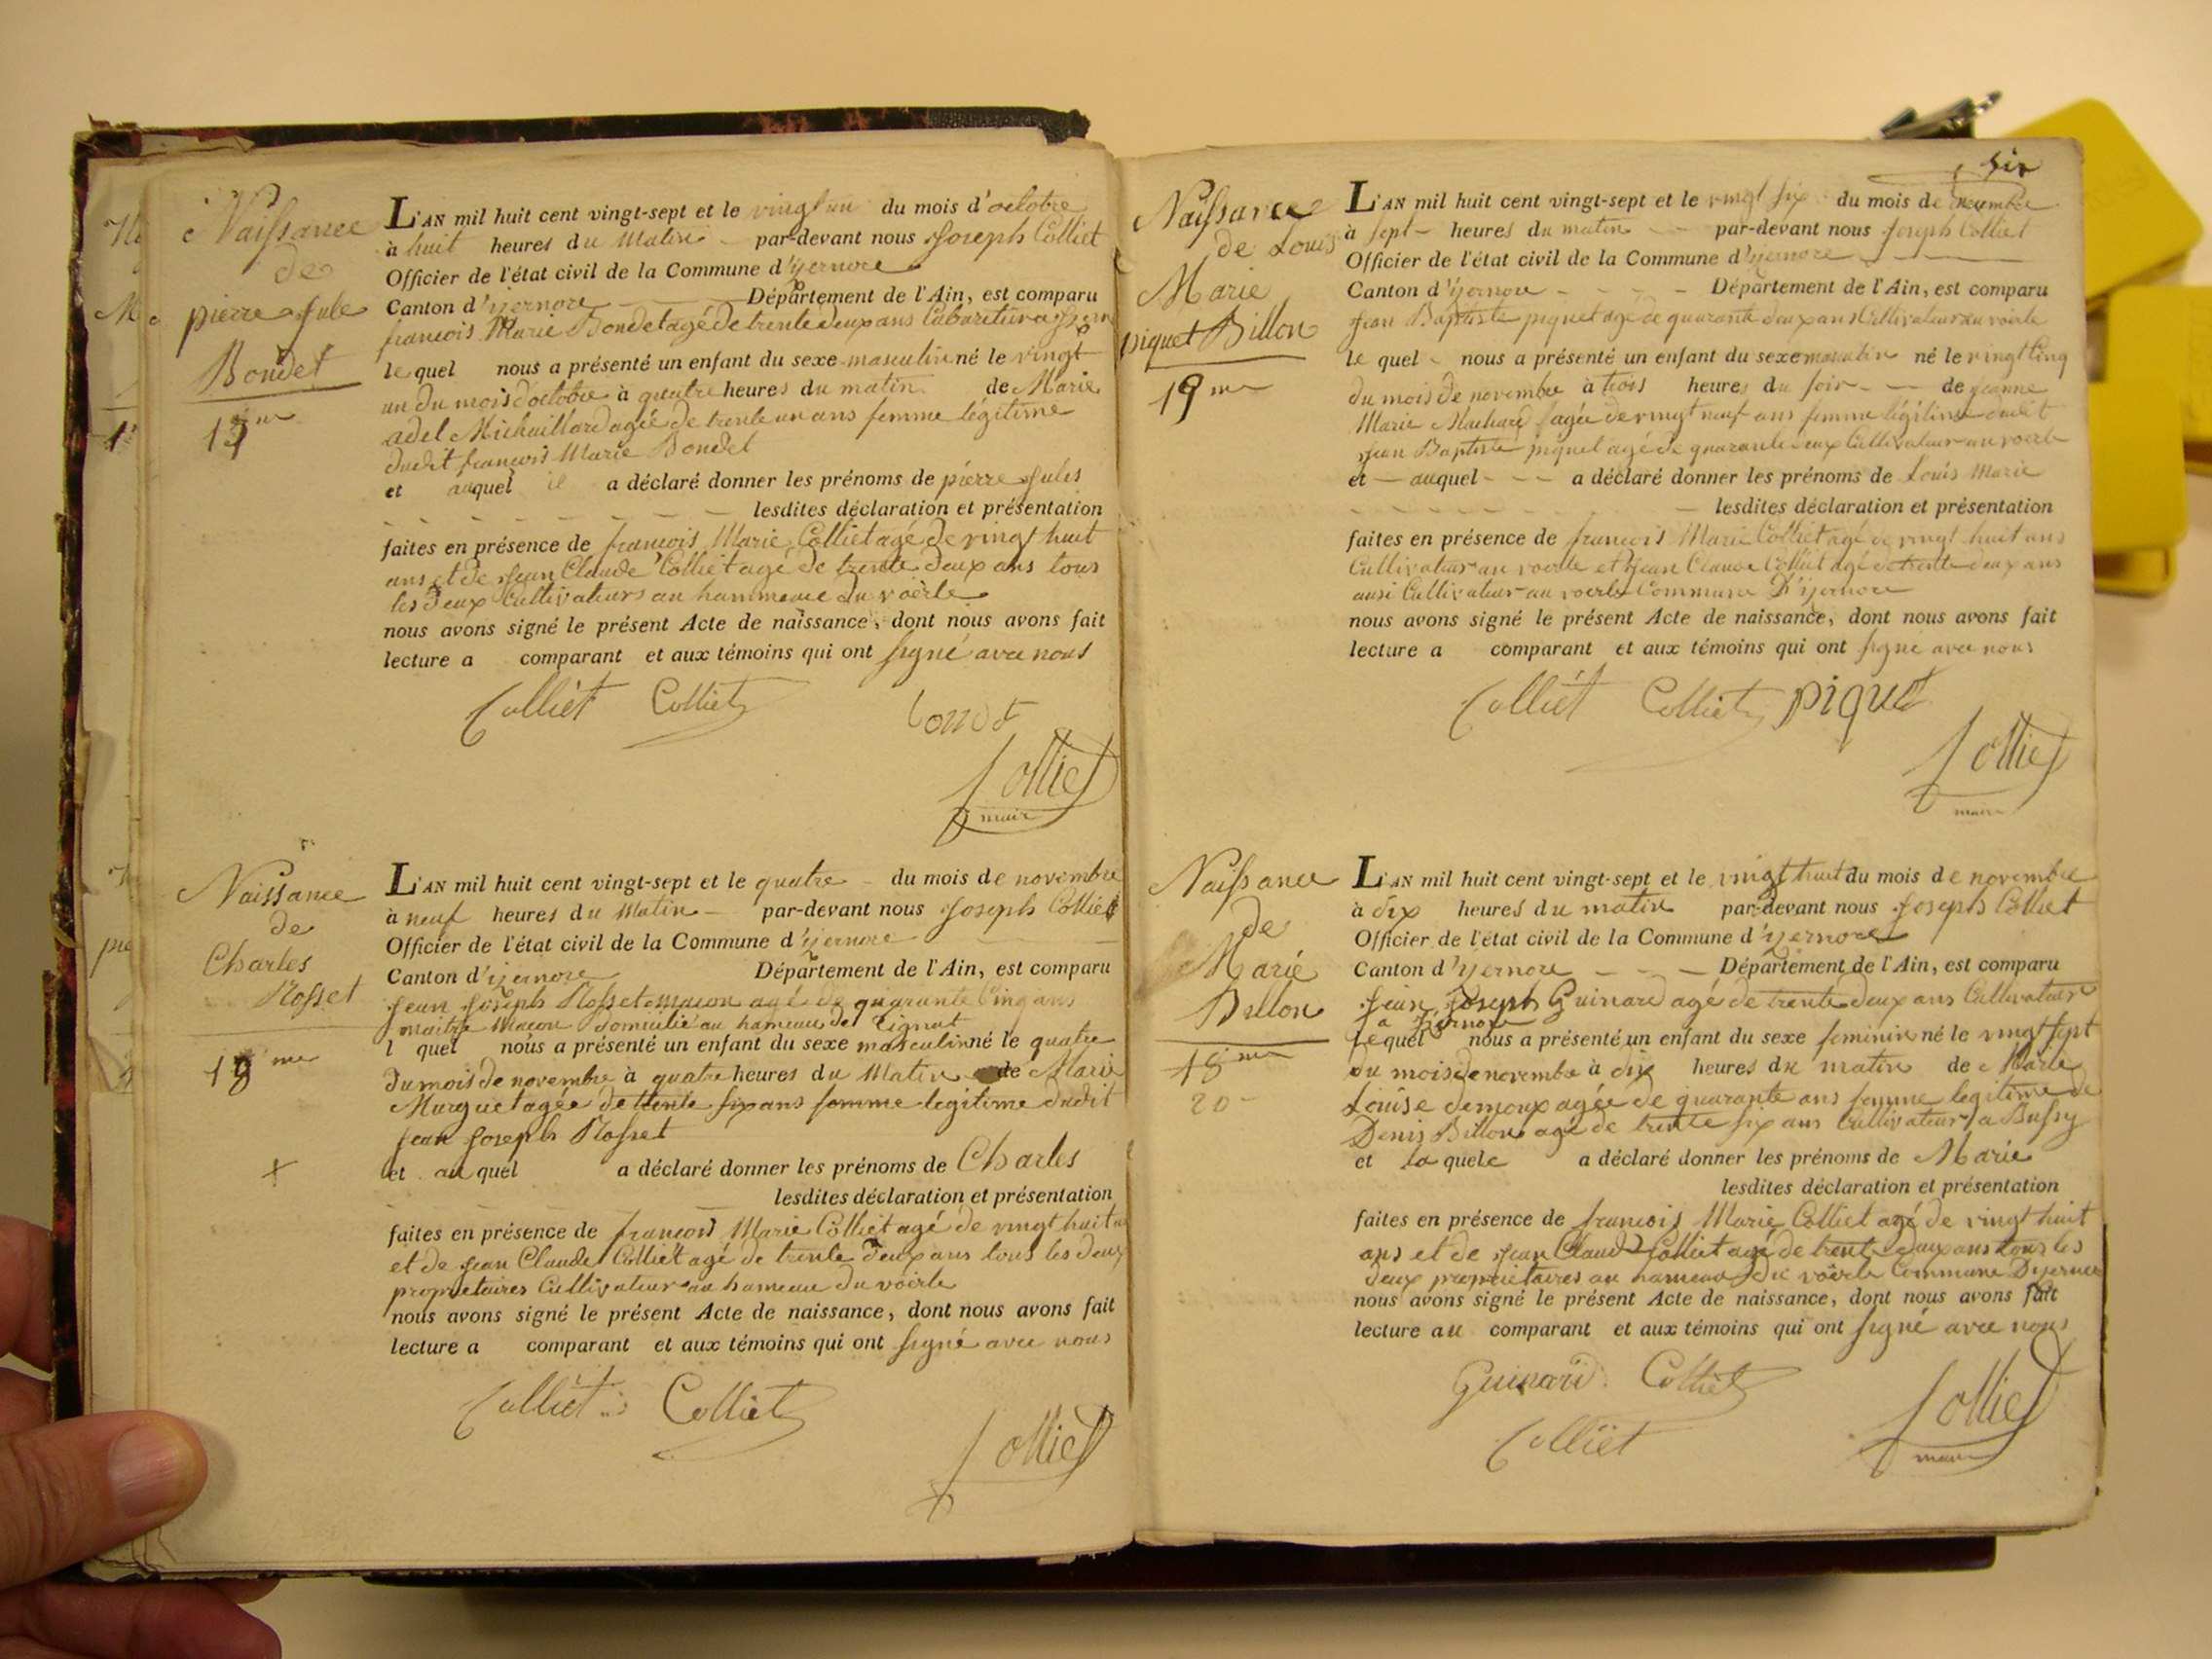 Naissance
de
pierre Jule
Bondet
17me
L'AN mil huit cent vingt-sept et le vingt un du mois d'octobre
à huit heures du Matin par-devant nous Joseph Colliet
Officier de l'état civil de la Commune d'yzernore
Canton d'yzernore Département de l'Ain, est comparu
francois Marie Bondet agé de trente deux ans
le quel nous a présenté un enfant du sexe masculin né le vingt
un du mois d'octobre à quatre heures du matin de Marie
adel Michaillard agée de trente un ans femme légitime
dudit francois Marie Bondet
et auquel il a déclaré donner les prénoms de pierre Jules
lesdites déclaration et présentation
faites en présence de francois Marie Colliet agé de vingt huit
ans et de Jean Claude Colliet agé de trente deux ans tous
les deux Cultivateurs au hammeau du voërle
nous avons signé le présent Acte de naissance, dont nous avons fait
lecture a comparant et aux témoins qui ont signé avec nous
Colliet Colliet bondet
Colliet
maire
Naissance
de
Charles
Rosset
18me
L'AN mil huit cent vingt-sept et le quatre du mois de novembre
à neuf heures du Matin par-devant nous Joseph Colliet
Officier de l'état civil de la Commune d'yzernore
Canton d'yzernore Département de l'Ain, est comparu
Jean Joseph Rosset macon agé de quarante Cinq ans
maitre Macon domicilié au hameau de Tignat
l quel nous a présenté un enfant du sexe masculin né le quatre
du mois de novembre à quatre heures du Matin de Marie
Murguet agée de trente six ans femme legitime dudit
Jean Joseph Rosset
et au quel a déclaré donner les prénoms de Charles
lesdites déclaration et présentation
faites en présence de francois Marie Colliet agé de vingt huit
et de Jean Claude Colliet agé de trente deux ans tous les deux
proprietaires Cultivateur au hameau du voërle
nous avons signé le présent Acte de naissance, dont nous avons fait
lecture a comparant et aux témoins qui ont signé avec nous
Colliet Colliet
Colliet
six
Naissance
de Louis
Marie
piquet Billon
19me
L'AN mil huit cent vingt-sept et le vingt six du mois de novembre
à sept heures du matin par-devant nous Joseph Colliet
Officier de l'état civil de la Commune d'yzernore
Canton d'yzernore Département de l'Ain, est comparu
Jean Baptiste piquet agé de quarante deux ans Cultivateur au voërle
le quel nous a présenté un enfant du sexe masculin né le vingt Cinq
du mois de novembre à trois heures du soir de Jeanne
Marie Machard agée de vingt neuf ans femme légitime dudit
Jean Baptiste piquet agé de quarante deux Cultivateur au voërle
et auquel a déclaré donner les prénoms de Louis Marie
lesdites déclaration et présentation
faites en présence de francois Marie Colliet agé de vingt huit ans
Cultivateur au voerle et Jean Claude Colliet agé de trente deux ans
ausi Cultivateur au voerle Commune D'yzernore
nous avons signé le présent Acte de naissance, dont nous avons fait
lecture a comparant et aux témoins qui ont signé avec nous
Colliet Colliet piquet
Colliet
maire
Naissance
de
Marie
Billon
18me
20
L'AN mil huit cent vingt-sept et le vingt huit du mois de novembre
à dix heures du matin par-devant nous Joseph Colliet
Officier de l'état civil de la Commune d'yzernore
Canton d'yzernore Département de l'Ain, est comparu
Jean Joseph Guinard agé de trente deux ans Cultivateur
a yzernore
lequel nous a présenté un enfant du sexe feminin né le vingt sept
du mois de novembre à dix heures du matin de Marie
Louise demoux agée de quarante ans femme legitime de
Denis Billon agé de trente six ans Cultivateur a Bussy
et la quele a déclaré donner les prénoms de Marie
lesdites déclaration et présentation
faites en présence de francois Marie Colliet agé de vingt huit
ans et de Jean Claude Colliet agé de trente deux ans tous les
deux proprietaires au hameau du voërle Commune Dyzernore
nous avons signé le présent Acte de naissance, dont nous avons fait
lecture au comparant et aux témoins qui ont signé avec nous
Guinard Colliet
Colliet
Colliet
maire